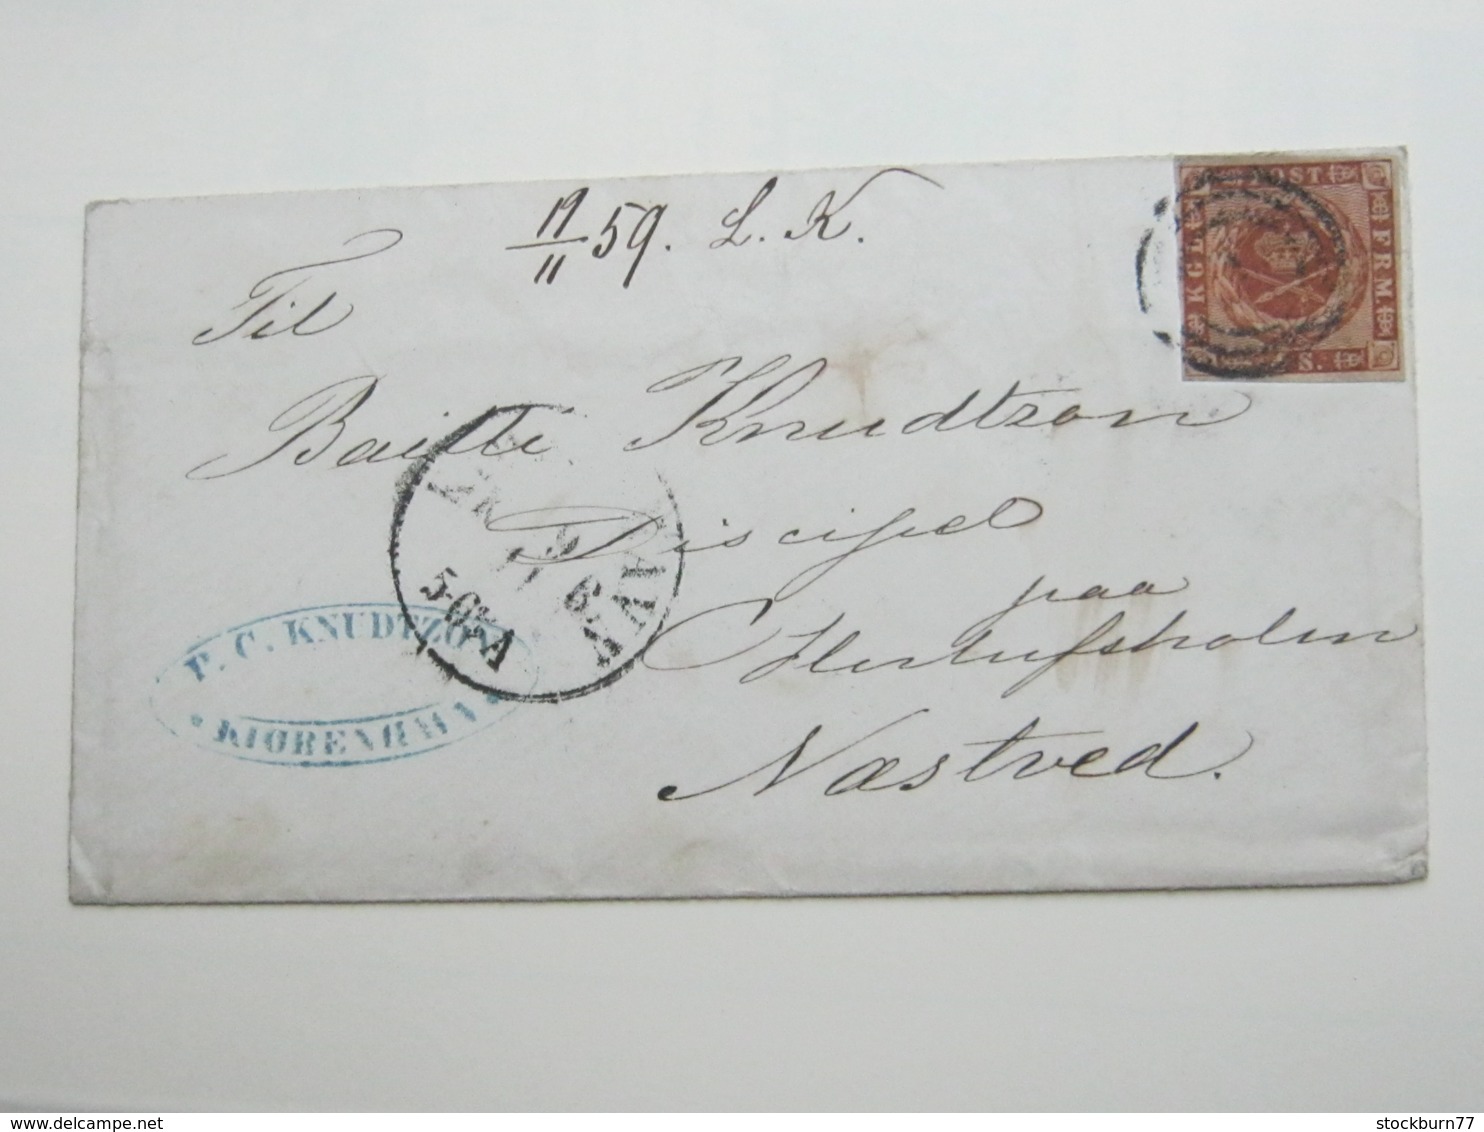 19/11 59. L. K.
KGL POST FRM S.
Til
Knudtzon
Discipel
paa
Herlufsholm
Næstved.
P. C. KNUDTZON
KIØBENHAVN
5-6 EA
delcampe.net
stockburn77